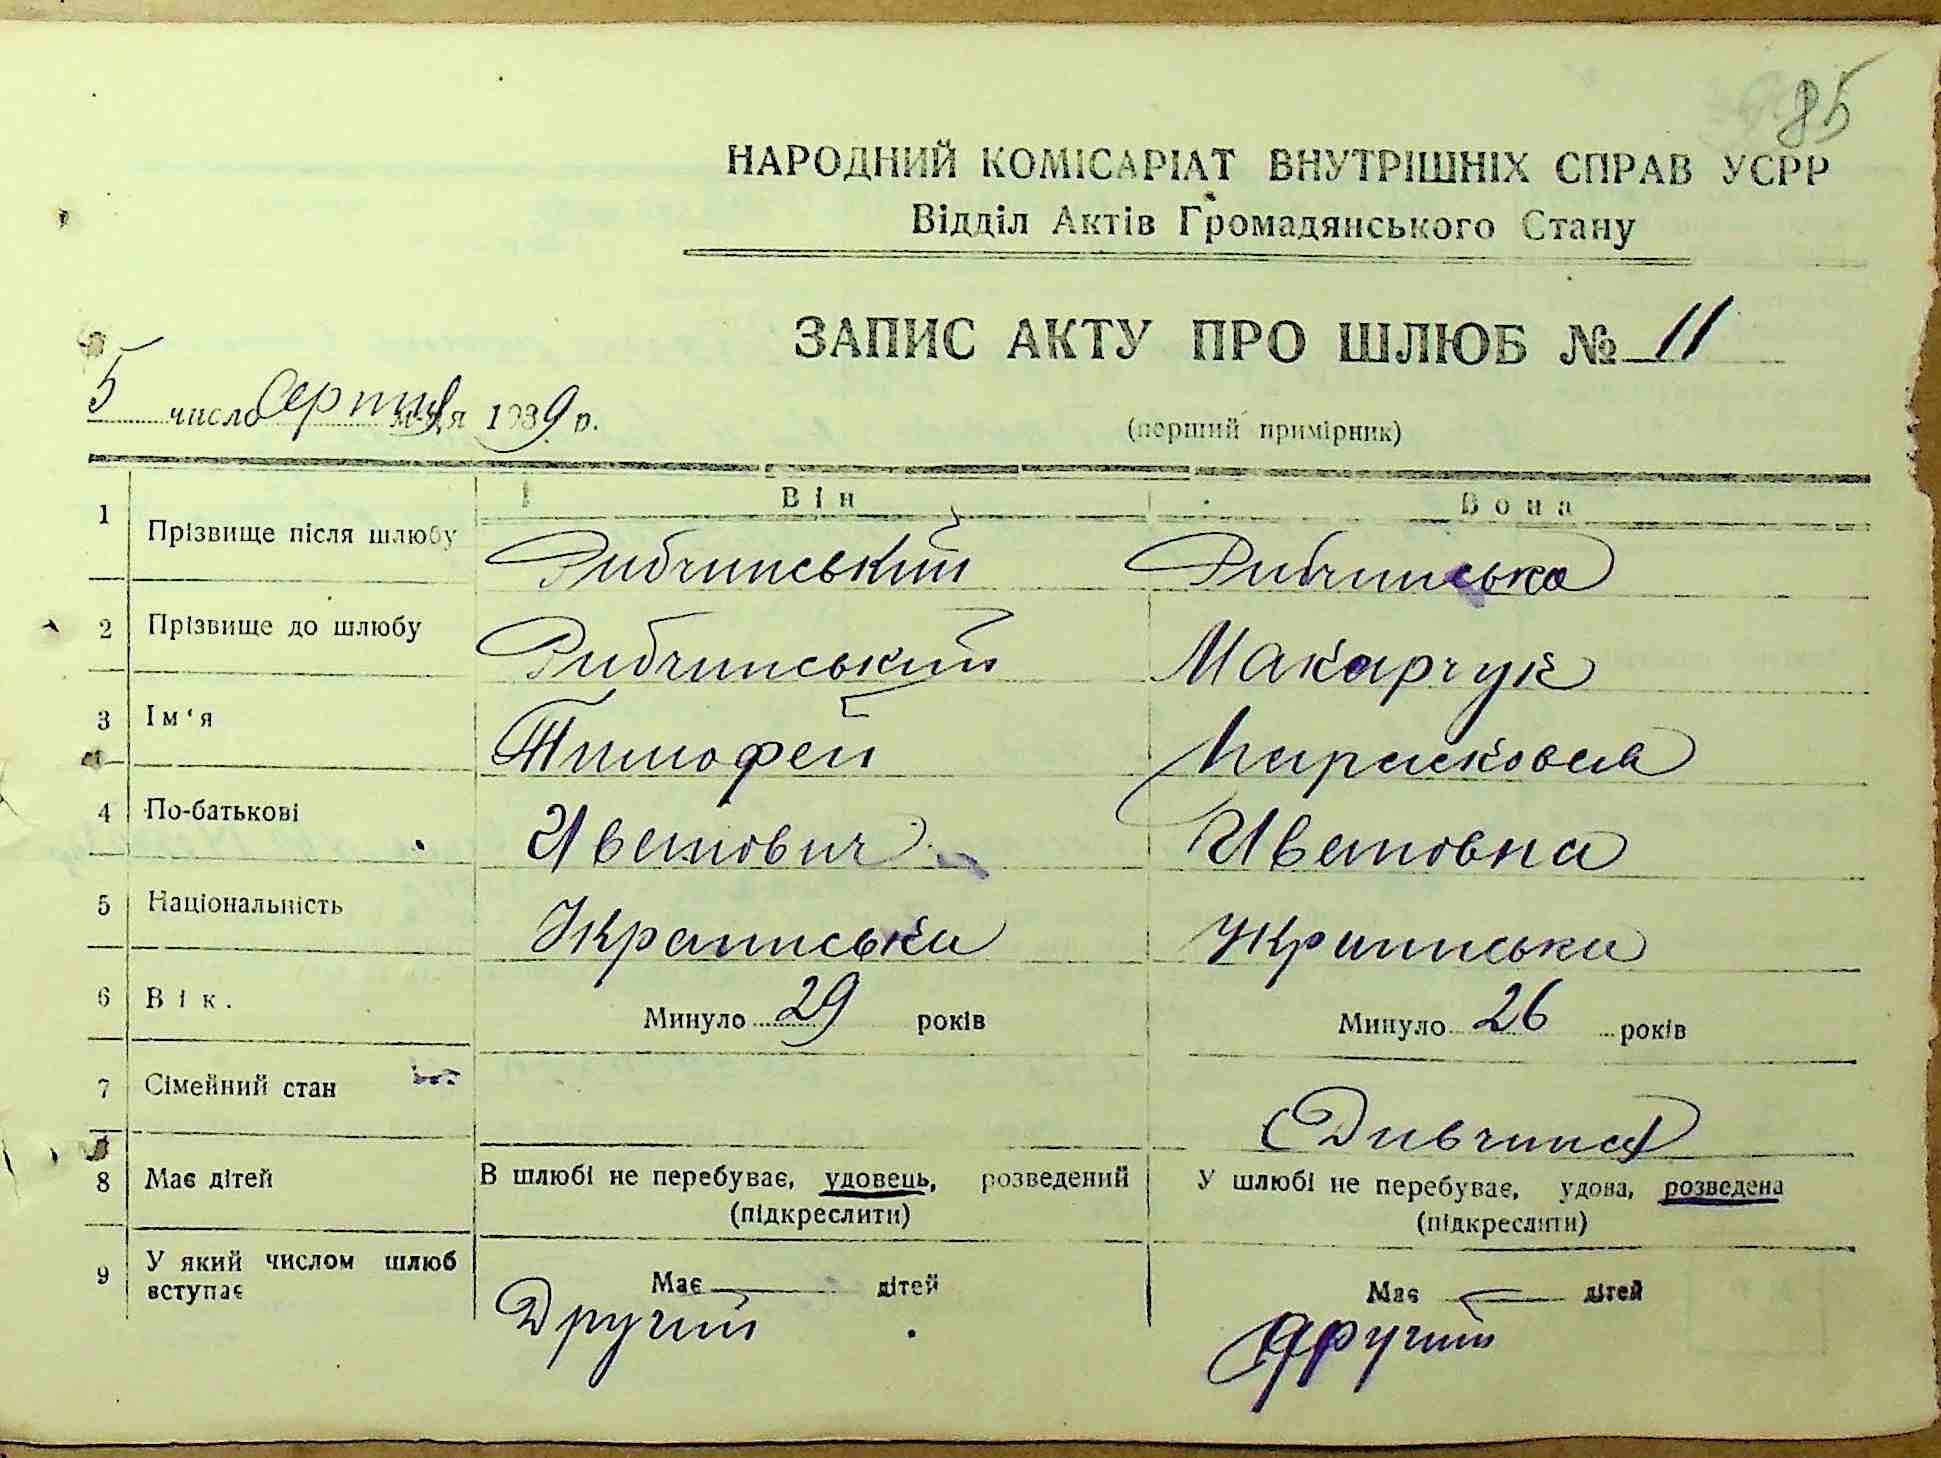 85
НАРОДНИЙ КОМІСАРІАТ ВНУТРІШНІХ СПРАВ УСРР
Відділ Актів Громадянського Стану
ЗАПИС АКТУ ПРО ШЛЮБ № 11
5 число серпня м-ця 1939 р.
(перший примірник)
Він Вона
1 Прізвище після шлюбу Рибчинський Рибчинська
2 Прізвище до шлюбу Рибчинський Макарчук
3 Ім‘я Тимофей Парасковея
4 По-батькові Иванович Ивановна
5 Національність Українська Українська
6 Вік. Минуло 29 років Минуло 26 років
7 Сімейний стан Дивчина
8 Має дітей В шлюбі не перебуває, удовець, розведений У шлюбі не перебуває, удова, розведена
(підкреслити) (підкреслити)
9 У який числом шлюб вступає Має — дітей Має — дітей
Другий Другий